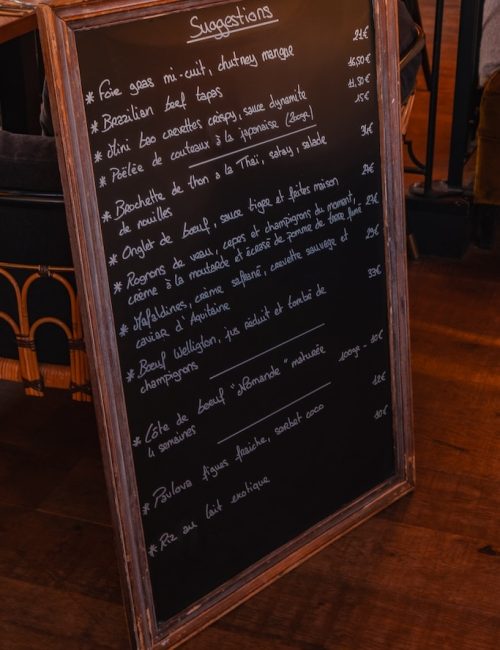 Suggestions
* Foie gras mi-cuit, chutney mangue 21€
* Brazilian beef tapas 16,50€
* Mini bao crevettes crispy, sauce dynamite 11,50€
* Poêlée de couteaux à la japonaise 15€
* Brochette de thon à la Thaï, satay, salade
de nouilles
* Onglet de boeuf, sauce tigre et frites maison
* Rognons de veau, cepes et champignons du moment,
crème à la moutarde et écrasé de pomme de terre fumé
* Mafaldines, crème safrané, crevette sauvage et
caviar d'Aquitaine
* Boeuf Wellington, jus réduit et tombé de
champignons
* Côte de boeuf "Normande" maturée
4 semaines
* Pavlova figues fraiche, sorbet coco 12€
* Riz au lait exotique 10€